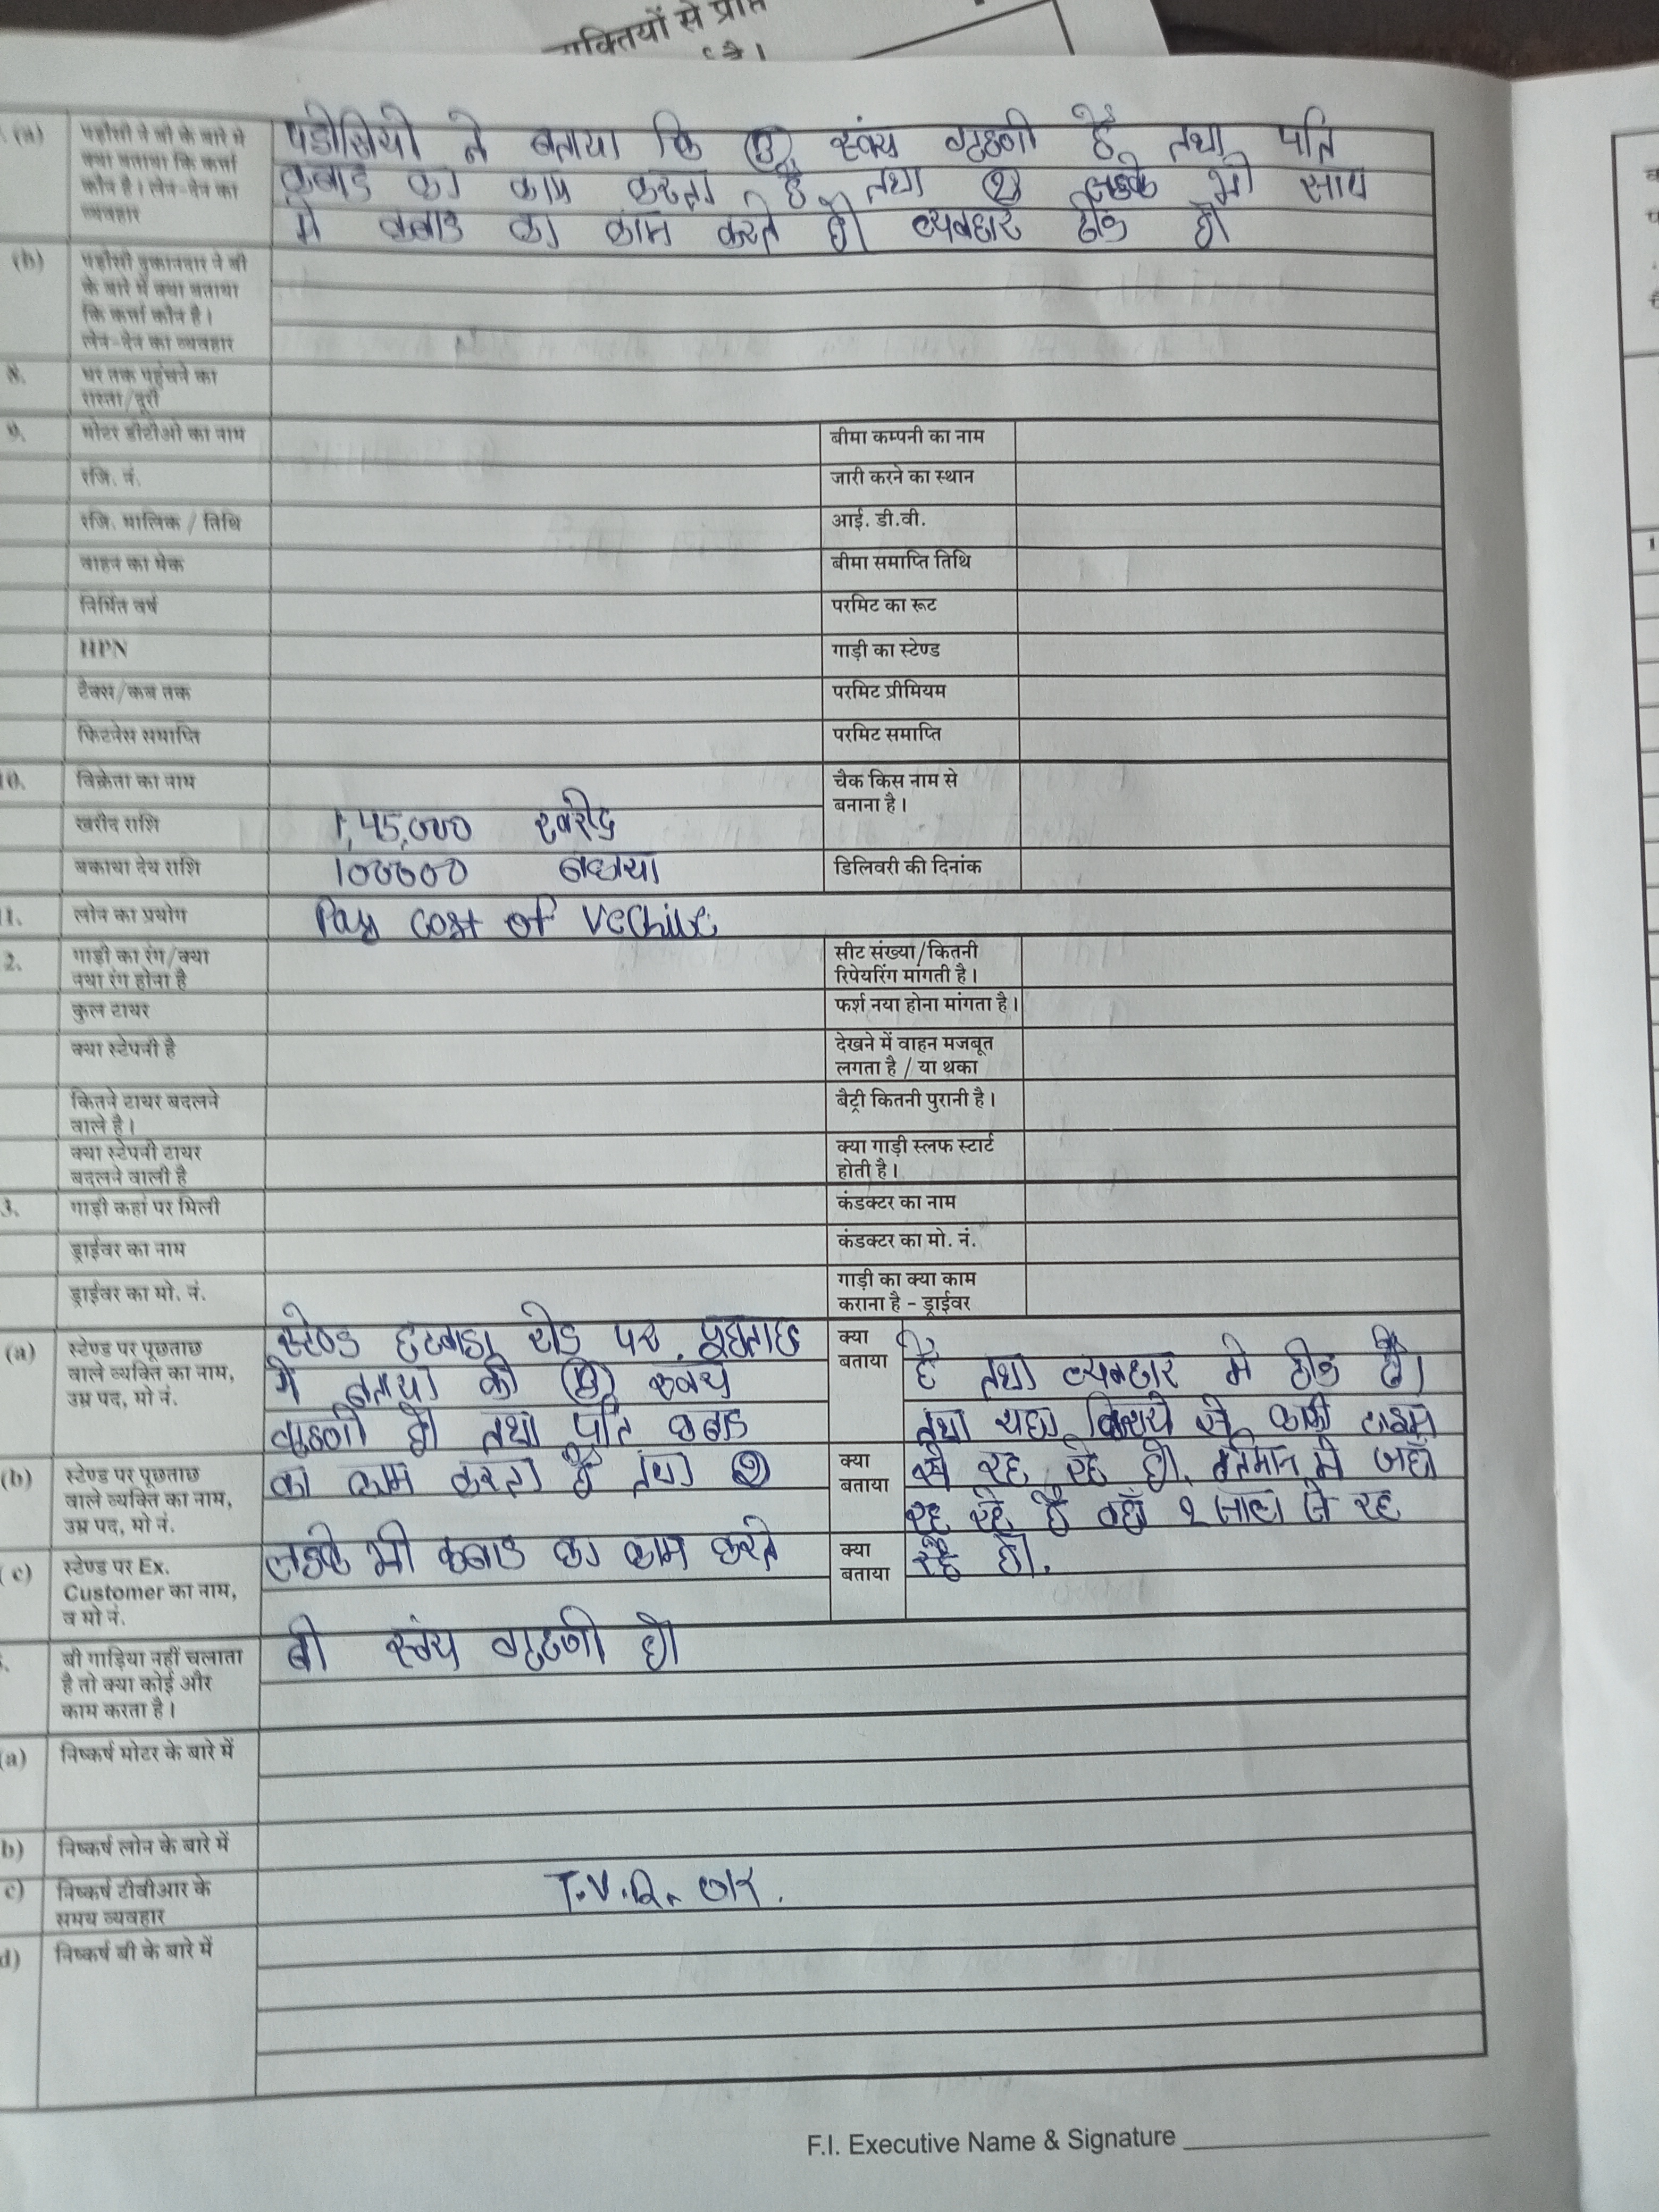 क्तियों से प्राप्त
है।
(a) पड़ौसी ने बी के बारे में
क्या बताया कि कर्त्ता
कौन है। लेन-देन का
व्यवहार
पडोसियो ने बताया कि (B) स्वंय गृहणी है तथा पति
कबाड का काम करता है तथा 2 लडके भी साथ
मे कबाड का काम करते है। व्यवहार ठीक है।
(b) पड़ौसी दुकानदार ने बी
के बारे में क्या बताया
कि कर्त्ता कौन है।
लेन-देन का व्यवहार
8. घर तक पहुंचने का
रास्ता/दूरी
9. मोटर डीटीओ का नाम
बीमा कम्पनी का नाम
रजि. नं.
जारी करने का स्थान
रजि. मालिक / तिथि
आई. डी.वी.
वाहन का मेक
बीमा समाप्ति तिथि
निर्मित वर्ष
परमिट का रूट
HPN
गाड़ी का स्टेण्ड
टैक्स/कब तक
परमिट प्रीमियम
फिटनेस समाप्ति
परमिट समाप्ति
10. विक्रेता का नाम
चैक किस नाम से
बनाना है।
खरीद राशि 1,45,000 खरीद
बकाया देय राशि 100000 बकाया
डिलिवरी की दिनांक
1. लोन का प्रयोग Pay cost of Vechile
2. गाड़ी का रंग/क्या
नया रंग होना है
सीट संख्या/कितनी
रिपेयरिंग मांगती है।
कुल टायर
फर्श नया होना मांगता है।
क्या स्टेपनी है
देखने में वाहन मजबूत
लगता है / या थका
कितने टायर बदलने
वाले है।
बैट्री कितनी पुरानी है।
क्या स्टेपनी टायर
बदलने वाली है
क्या गाड़ी स्लफ स्टार्ट
होती है।
3. गाड़ी कहां पर मिली
कंडक्टर का नाम
ड्राईवर का नाम
कंडक्टर का मो. नं.
ड्राईवर का मो. नं.
गाड़ी का क्या काम
कराना है - ड्राईवर
(a) स्टेण्ड पर पूछताछ
वाले व्यक्ति का नाम,
उम्र पद, मो नं.
स्टेण्ड हटवाडा रोड पर पूछताछ
मे बताया की (B) स्वंय
गृहणी है। तथा पति कबाड
क्या
बताया
है तथा व्यवहार मे ठीक है।
तथा यहा किराये से काफी टाइम
(b) स्टेण्ड पर पूछताछ
वाले व्यक्ति का नाम,
उम्र पद, मो. नं.
का काम करता है तथा 2
क्या
बताया
से रह रहे है। वर्तमान मे जहाँ
रह रहे है वहाँ 2 साल से रह
(c) स्टेण्ड पर Ex.
Customer का नाम,
व मो नं.
लडके भी कबाड का काम करते
क्या
बताया
रहे है।
बी गाड़िया नहीं चलाता
है तो क्या कोई और
काम करता है।
बी स्वंय गृहणी है।
(a) निष्कर्ष मोटर के बारे में
b) निष्कर्ष लोन के बारे में
c) निष्कर्ष टीवीआर के
समय व्यवहार
T.V.R.
d) निष्कर्ष बी के बारे में
F.I. Executive Name & Signature